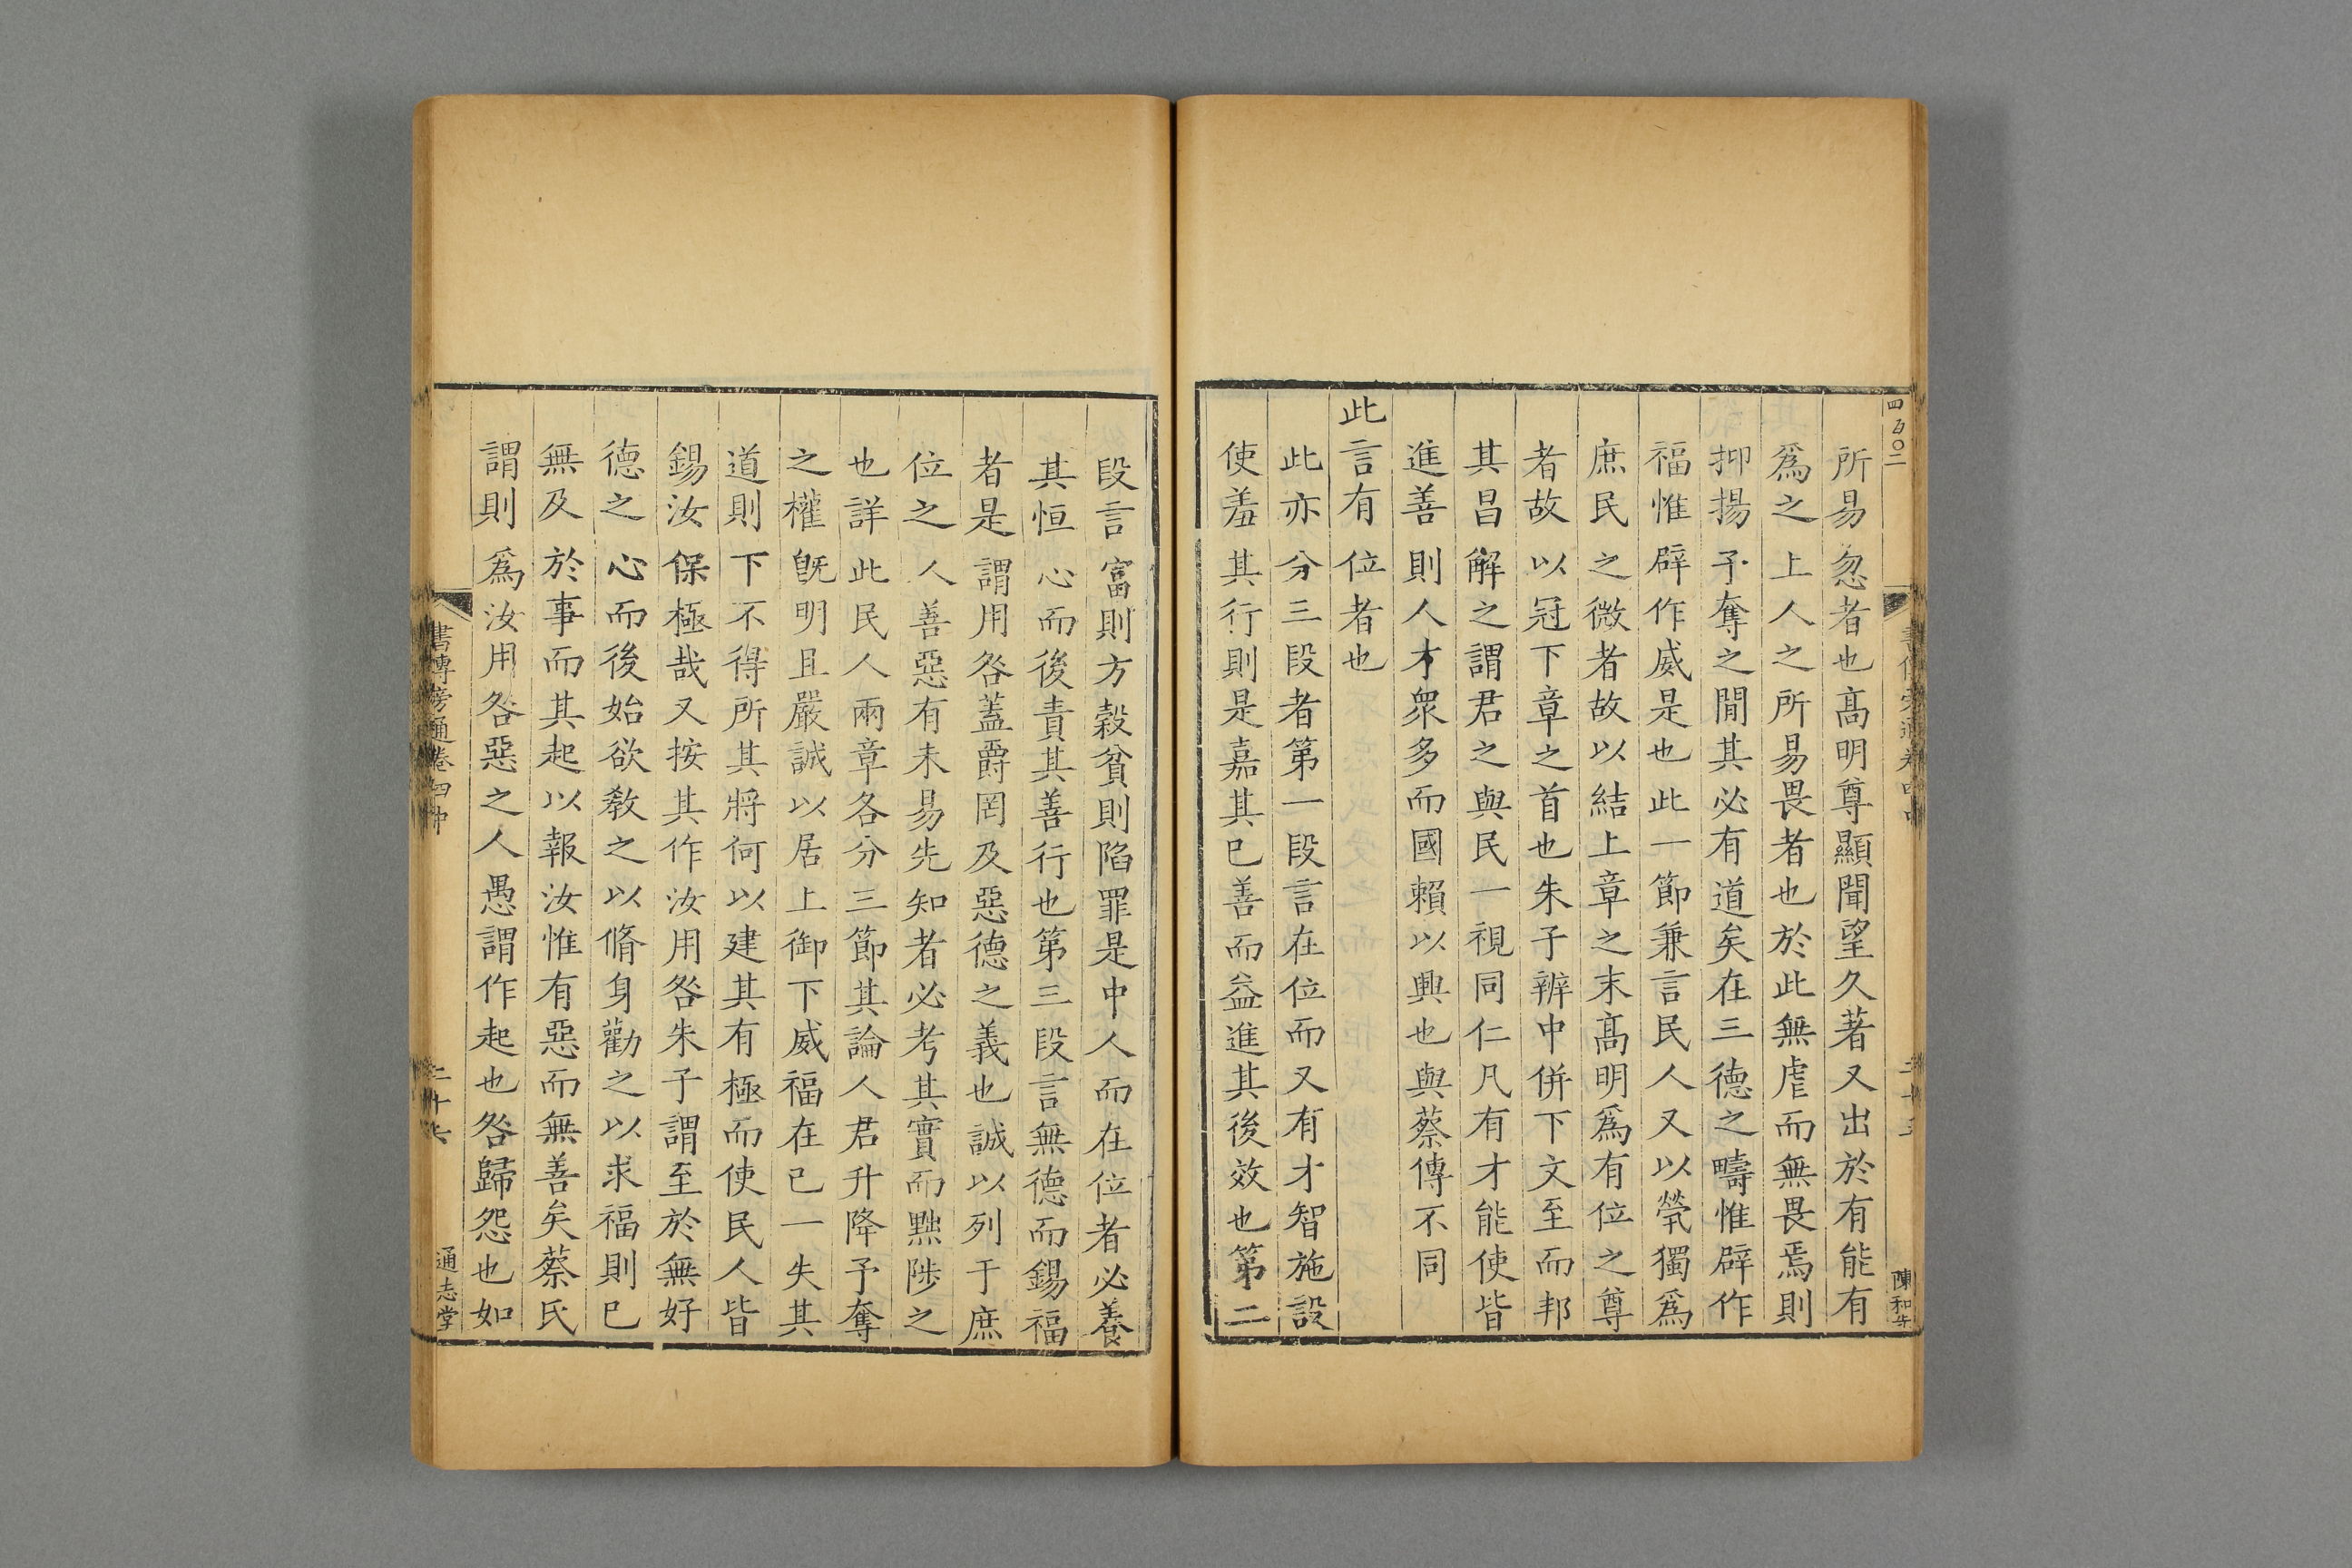 四百〇二
書傳旁通卷四中
陳和先
所易忽者也髙明尊顯聞望久著又出於有能有
爲之上人之所易畏者也於此無虐而無畏焉則
抑揚予奪之間其必有道矣在三德之疇惟辟作
福惟辟作威是也此一節兼言民人又以煢獨爲
庶民之微者故以結上章之末髙明爲有位之尊
者故以冠下章之首也朱子辨中併下文至而邦
其昌解之謂君之與民一視同仁凡有才能使皆
進善則人才衆多而國賴以興也與蔡傳不同
此言有位者也
此亦分三段者第一段言在位而又有才智施設
使羞其行則是嘉其已善而益進其後效也第二
段言富則方穀貧則陷罪是中人而在位者必養
其恒心而後責其善行也第三段言無德而錫福
者是謂用咎蓋爵罔及惡德之義也誠以列于庶
位之人善惡有未易先知者必考其實而黜陟之
也詳此民人兩章各分三節其論人君升降予奪
之權旣明且嚴誠以居上御下威福在已一失其
道則下不得所其將何以建其有極而使民人皆
錫汝保極哉又按其作汝用咎朱子謂至於無好
德之心而後始欲敎之以脩身勸之以求福則已
無及於事而其起以報汝惟有惡而無善矣蔡氏
謂則爲汝用咎惡之人愚謂作起也咎歸怨也如
書傳旁通卷四中
二十六
通志堂